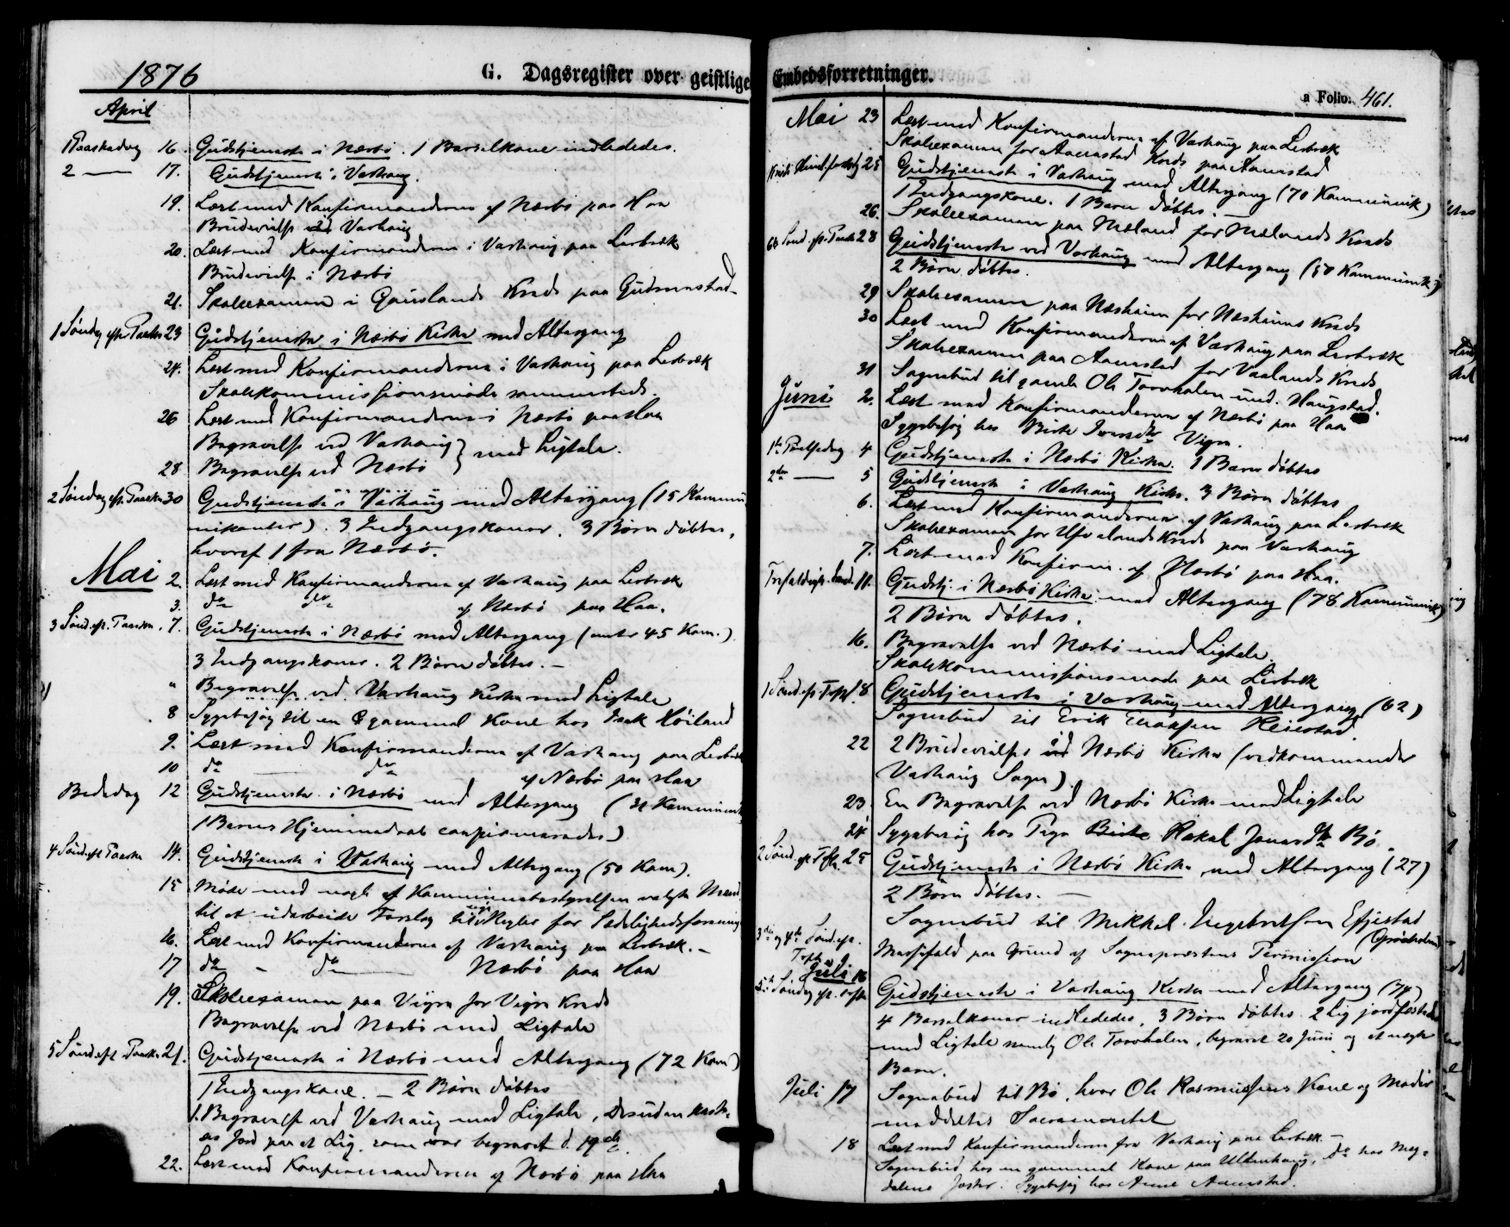 1876
G. Dagsregister over geistlige
April
Paaskedag 16. Gudstjeneste i Nærbø. 1 Barselkone indlededes.
2 — 17. Gudstjeneste i Varhaug.
19. Læst med Konfirmanderne af Nærbø paa Haa
Brudevielse Varhaug
20. Læst med Konfirmanderne i Varhaug paa Lerbræk
Brudevielse i Nærbø
21. Skoleexamen i Gauslands Kreds paa Gudmestad
1 Søndag eft. Paaske 23 Gudstjeneste i Nærbø Kirke med Altergang
24. Læst med Konfirmanderne i Varhaug paa Lerbræk
Skolekommissionsmøde sammesteds.
26 Læst med Konfirmanderne i Nærbø paa Haa
Begravelse ved Varhaug } med Ligtale.
28 Begravelse ved Nærbø
2 Søndag eft. Paaske 30 Gudstjeneste i Varhaug med Altergang (15 Kommu-
nikanter). 3 Indgangskoner. 3 Børn døbtes,
hvoraf 1 fra Nærbø.
Mai 2 Læst med Konfirmanderne af Varhaug paa Lerbræk
3. do do af Nærbø paa Haa.
3 Sønd. eft. Paaske. 7. Gudstjeneste i Nærbø med Altergang (45 Kom.)
3 Indgangskoner. 2 Børn døbtes. —
" Begravelse ved Varhaug Kirke med Ligtale
8 Sygebesøg til en gammel Kone hos Høiland
9. Læst med Konfirmanderne af Varhaug paa Lerbræk
10 do — do af Nærbø paa Haa
Bededag 12 Gudstjeneste i Nærbø med Altergang (
1 Barns Hjemmedaab
4 Sønd. eft Paaske 14. Gudstjeneste i Varhaug med Altergang (50 Kom).
15 Møde med nogle af Kommunebestyrelsen valgte Mænd
til at udarbeide Forslag til Regler for Sædelighedsforening
16. Læst med Konfirmanderne af Varhaug paa Lerbræk. —
17 do - do — Nærbø paa Haa
19. Skoleexamen paa Vigre for Vigre Kreds
Begravelse ved Nærbø med Ligtale
5 Sønd. eft. Paaske 21. Gudstjeneste i Nærbø med Altergang (72 Kom)
1 Indgangskone. — 2 Børn døbtes
1. Begravelse ved Varhaug med Ligtale, Desuden kaste-
des Jord paa et Lig, som var begravet d. 19de.
22. Læst med Konfirmanderne af Nærbø paa Haa
Embedsforretninger.
a Folio. 461.
Mai 23 Læst med Konfirmanderne af Varhaug paa Lerbræk
Skoleexamen for Aanestad Kreds paa Aanestad
Kristi Himmelfartsdag 25 Gudstjeneste i Varhaug med Altergang (70 Kommunik)
1 Indgangskone. 1 Barn døbtes. —
26. Skoleexamen paa Mæland for Mælands Kreds
6te Sønd. eft. Paaske 28 Gudstjeneste ved Varhaug med Altergang (50 Kommunik)
2 Børn døbtes.
29 Skoleexamen paa Næsheim for Næsheims Kreds
30 Læst med Konfirmanderne af Varhaug paa Lerbræk
Skoleexamen paa Aanestad for Vaalands Kreds
31 Sognebud til gamle Ole Torvhalen und. Haugstad.
Juni 2. Læst med Konfirmanderne af Nærbø paa Haa
Sygebesøg hos Birte Vigre.
1te Pintsedag 4 Gudstjeneste i Nærbø Kirke. 3 Børn døbtes
2den — 5 Gudstjeneste i Varhaug Kirke. 3 Børn døbtes
6. Læst med Konfirmanderne af Varhaug paa Lerbræk
Skoleexamen for Kreds paa Varhaug
7. Læst med Konfirm. af Nærbø paa Haa.
Trefoldigh. Sønd. 11. Gudstj. i Nærbø Kirke med Altergang (78 Kommunik)
2 Børn døbtes.
16. Begravelse ved Nærbø med Ligtale.
Skolekommissionsmøde paa Lerbræk
1 Sønd. eft Tref. 18 Gudstjeneste i Varhaug med Altergang (62)
Sognebud til Erik
22 2 Brudevielser i Nærbø Kirke (vedkommende
Varhaug Sogn)
23. En Begravelse ved Nærbø Kirke med Ligtale
24 Sygebesøg hos Pige Rakel Bø.
2 Sønd. eft Tref. 25 Gudstjeneste i Nærbø Kirke med Altergang (27)
2 Børn døbtes. —
Sognebud til Mikkel Ingebretsen
3die og 4de Sønd. eft. Tref. Messefald paa Grund af Sognepræstens Permission
Juli
5te Søndag eft. Tref. 16 Gudstjeneste i Varhaug Kirke med Altergang
4 Barselkoner indlededes, 3 Børn døbtes. 2 Lig jordfæstede
med Ligtale nemlig Ole Torvhalen, begravet 20 Juni og et
Barn.
Juli 17 Sognebud til Bø, hvor Ole Rasmussens Kone og Moder
meddeltes Sacramentet
18 Læst med Konfirmanderne fra Varhaug paa Lerbræk. —
Sognebud hos en gammel Kone paa Do hos
Sygebesøg hos Anne Aanestad.